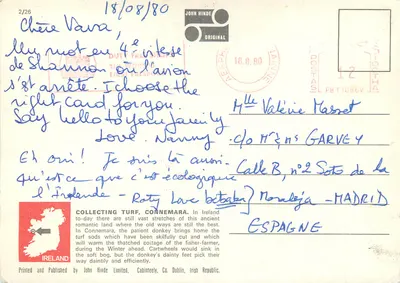 18/08/80
2/26
JOHN HINDE
ORIGINAL
Chère Vava,
Un mot en 4e vitesse
de Shannon où l'avion
s'est arrêté. I choose the
right card for you.
Say hello to your family
Love. Nanny
Eh oui! Je suis là aussi
qu'est ce que c'est écologique
l'Irlande - Roty Love
18.8.80
12
Mlle Valérie Masset
c/o Mr & Ms GARVEY
Calle B, nº2 Soto de la
Moraleja - MADRID
ESPAGNE
IRELAND
COLLECTING TURF, CONNEMARA. In Ireland
to-day there are still vast stretches of this ancient
romantic island where the old ways are still the best.
In Connemara, the patient donkey brings home the
turf sods which have been skilfully cut and which
will warm the thatched cottage of the fisher-farmer,
during the Winter ahead. Cartwheels would sink in
the soft bog, but the donkey's dainty feet pick their
way daintily and efficiently.
Printed and Published by John Hinde Limited, Cabinteely, Co. Dublin, Irish Republic.